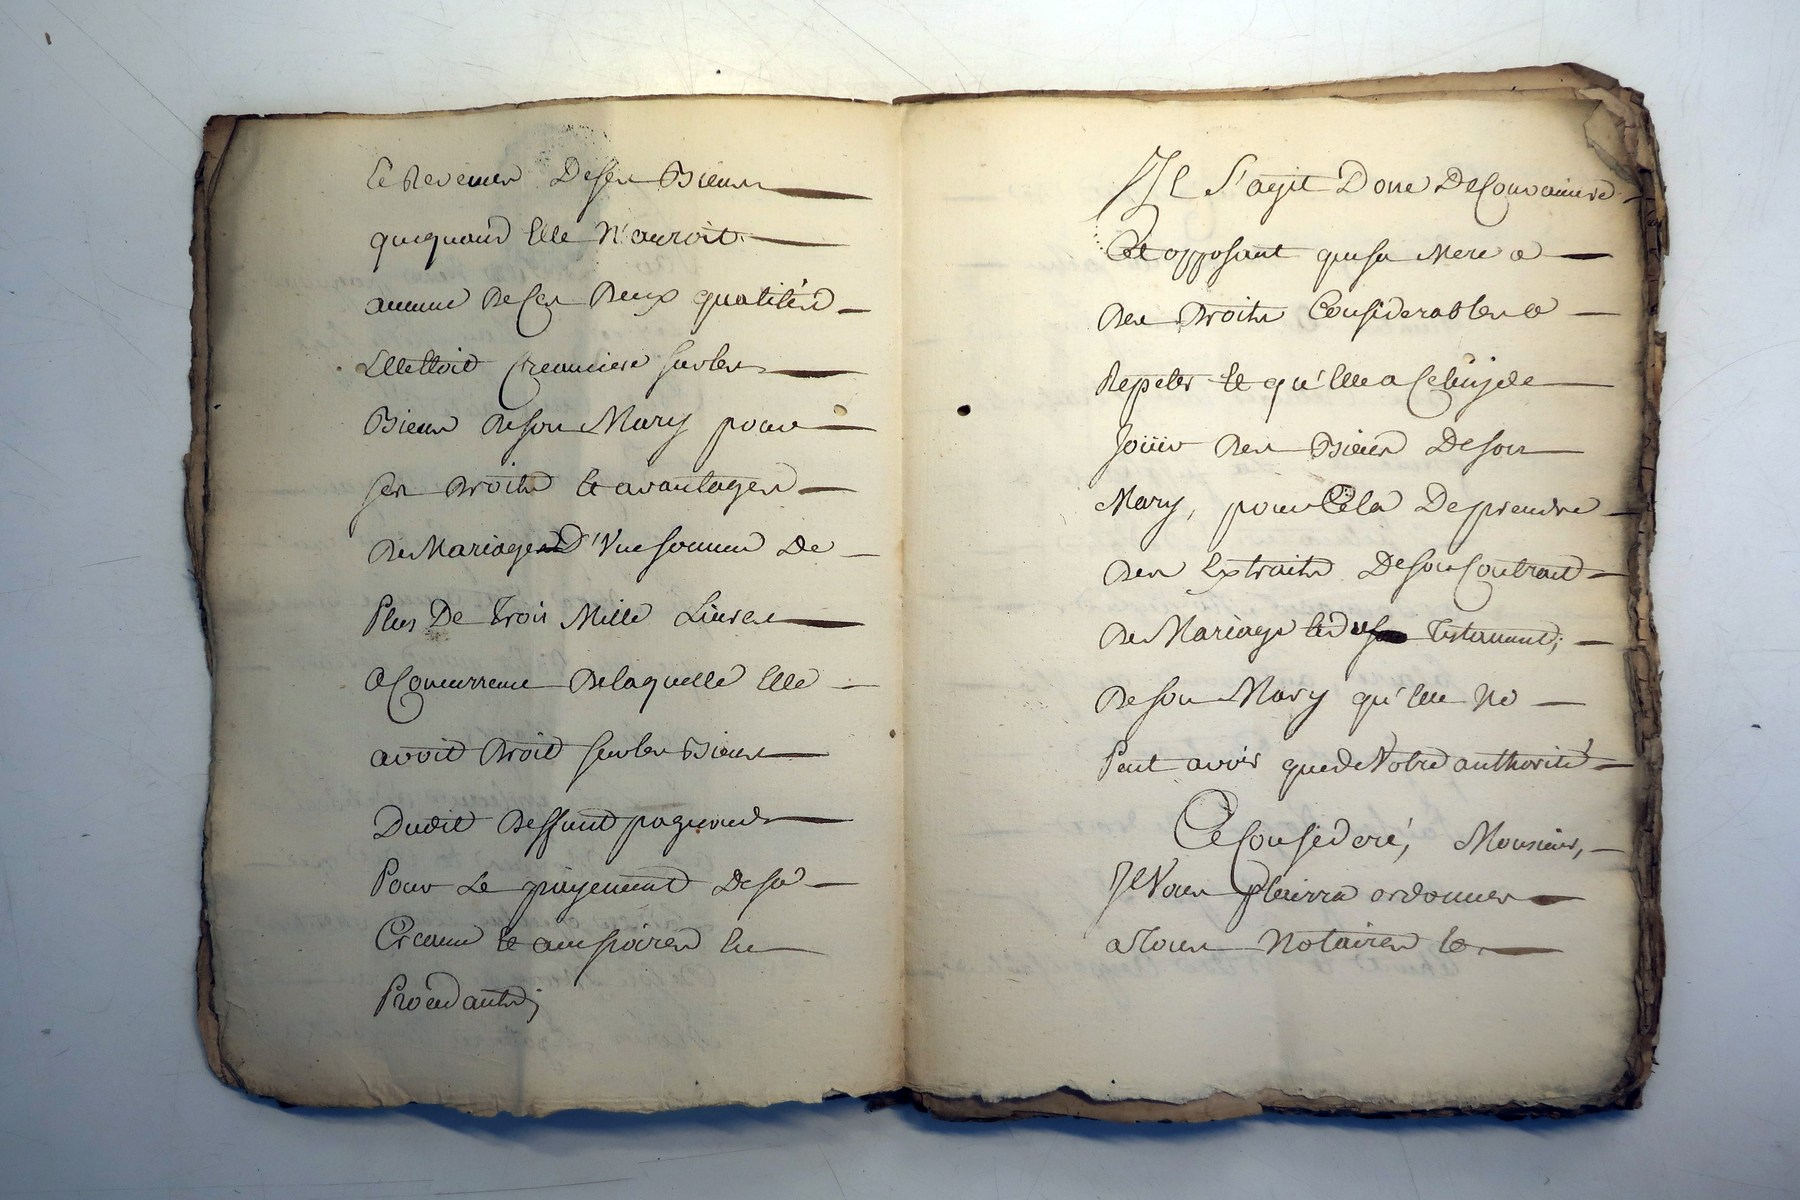 le Revenu De ses Biens
que quand Elle N'auroit
aucune De Ces Deux qualités
Elle Etoit Creanciere sur les
Biens De son Mary pour
ses Droits et avantages
De Mariage D'Une somme De
Plus De Trois Mille Livres
a Concurrence De laquelle Elle
avoit Droit sur les Biens
Dudit Deffunt
Pour Le payement De sa
Creance et accessoires en
Procedants;
Il S'agit Donc De Convaincre
Cet opposant que sa Mere a
Des Droits Considerables a
Repeter et qu'elle a Celuy de
Joüir Des Biens De son
Mary, pour Cela De prendre
Des Extraits De son Contract
De Mariage et du Testament,
De son Mary qu'elle Ne
Peut avoir que de Votre authorité
Ce Consideré, Monsieur,
Il Vous Plairra ordonner
a Tous Notaires et